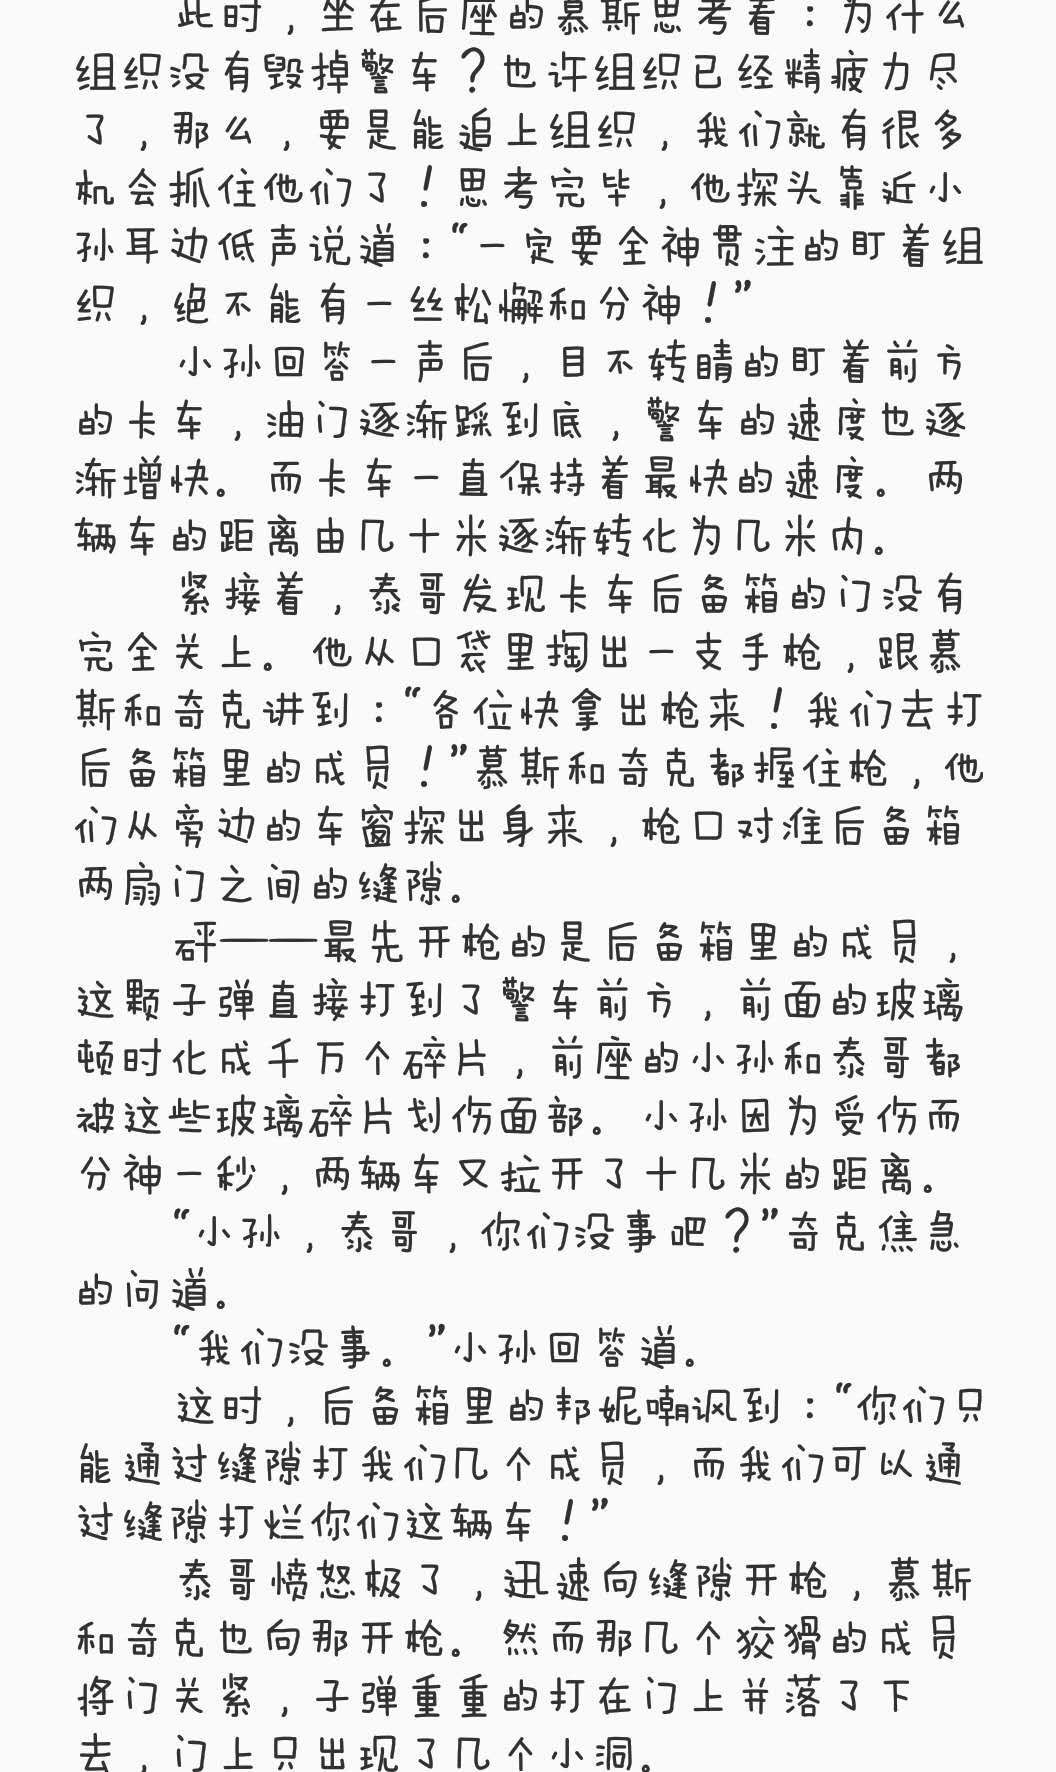 此时，坐在后座的慕斯思考着：为什么
组织没有毁掉警车？也许组织已经精疲力尽
了，那么，要是能追上组织，我们就有很多
机会抓住他们了！思考完毕，他探头靠近小
孙耳边低声说道：“一定要全神贯注的盯着组
织，绝不能有一丝松懈和分神！”
小孙回答一声后，目不转睛的盯着前方
的卡车，油门逐渐踩到底，警车的速度也逐
渐增快。而卡车一直保持着最快的速度。两
辆车的距离由几十米逐渐转化为几米内。
紧接着，泰哥发现卡车后备箱的门没有
完全关上。他从口袋里掏出一支手枪，跟慕
斯和奇克讲到：“各位快拿出枪来！我们去打
后备箱里的成员！”慕斯和奇克都握住枪，他
们从旁边的车窗探出身来，枪口对准后备箱
两扇门之间的缝隙。
砰——最先开枪的是后备箱里的成员，
这颗子弹直接打到了警车前方，前面的玻璃
顿时化成千万个碎片，前座的小孙和泰哥都
被这些玻璃碎片划伤面部。小孙因为受伤而
分神一秒，两辆车又拉开了十几米的距离。
“小孙，泰哥，你们没事吧？”奇克焦急
的问道。
“我们没事。”小孙回答道。
这时，后备箱里的邦妮嘲讽到：“你们只
能通过缝隙打我们几个成员，而我们可以通
过缝隙打烂你们这辆车！”
泰哥愤怒极了，迅速向缝隙开枪，慕斯
和奇克也向那开枪。然而那几个狡猾的成员
将门关紧，子弹重重的打在门上并落了下
去，门上只出现了几个小洞。